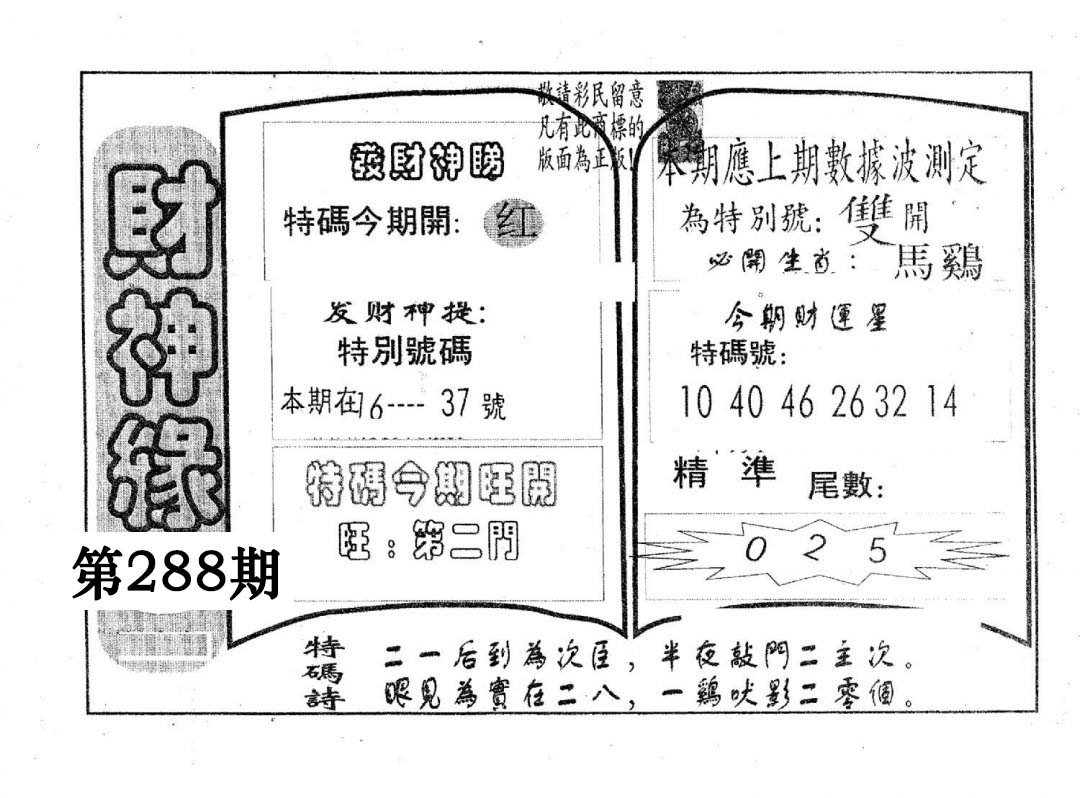 財神緣
第288期
敬請彩民留意
凡有此商標的
版面為正版!
發財神賜
特碼今期開: 红
发财神提:
特別號碼
本期在16---- 37號
特碼今期旺開
旺:第二門
本期應上期數據波測定
為特別號: 雙開
必開生肖: 馬鷄
今期財運星
特碼號:
10 40 46 26 32 14
精準 尾數:
0 2 5
特碼詩
二一后到為次臣,半夜敲門二主次。
眼見為實在二八,一鷄吠影二零個。